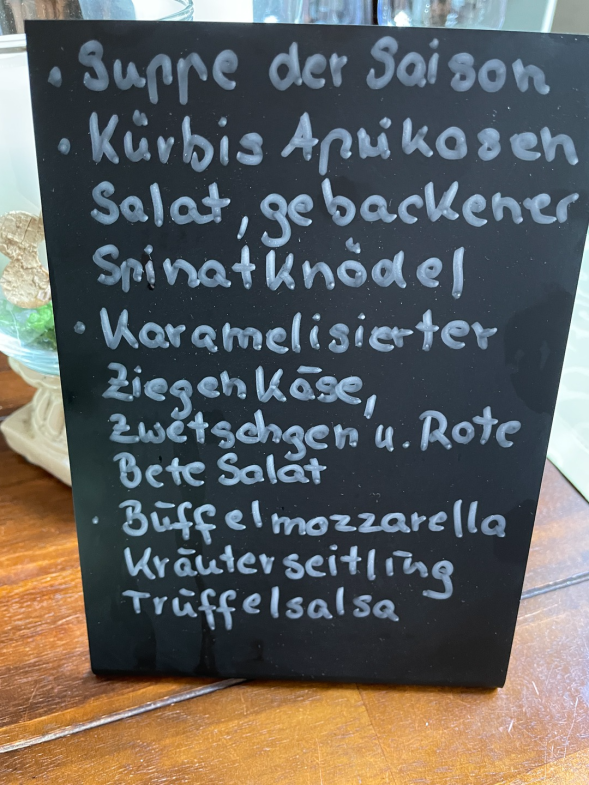 • Suppe der Saison
• Kürbis Aprikosen
Salat, gebackener
Spinatknödel
• Karamelisierter
Ziegenkäse,
Zwetschgen u. Rote
Bete Salat
• Büffelmozzarella
Kräuterseitling
Trüffelsalsa